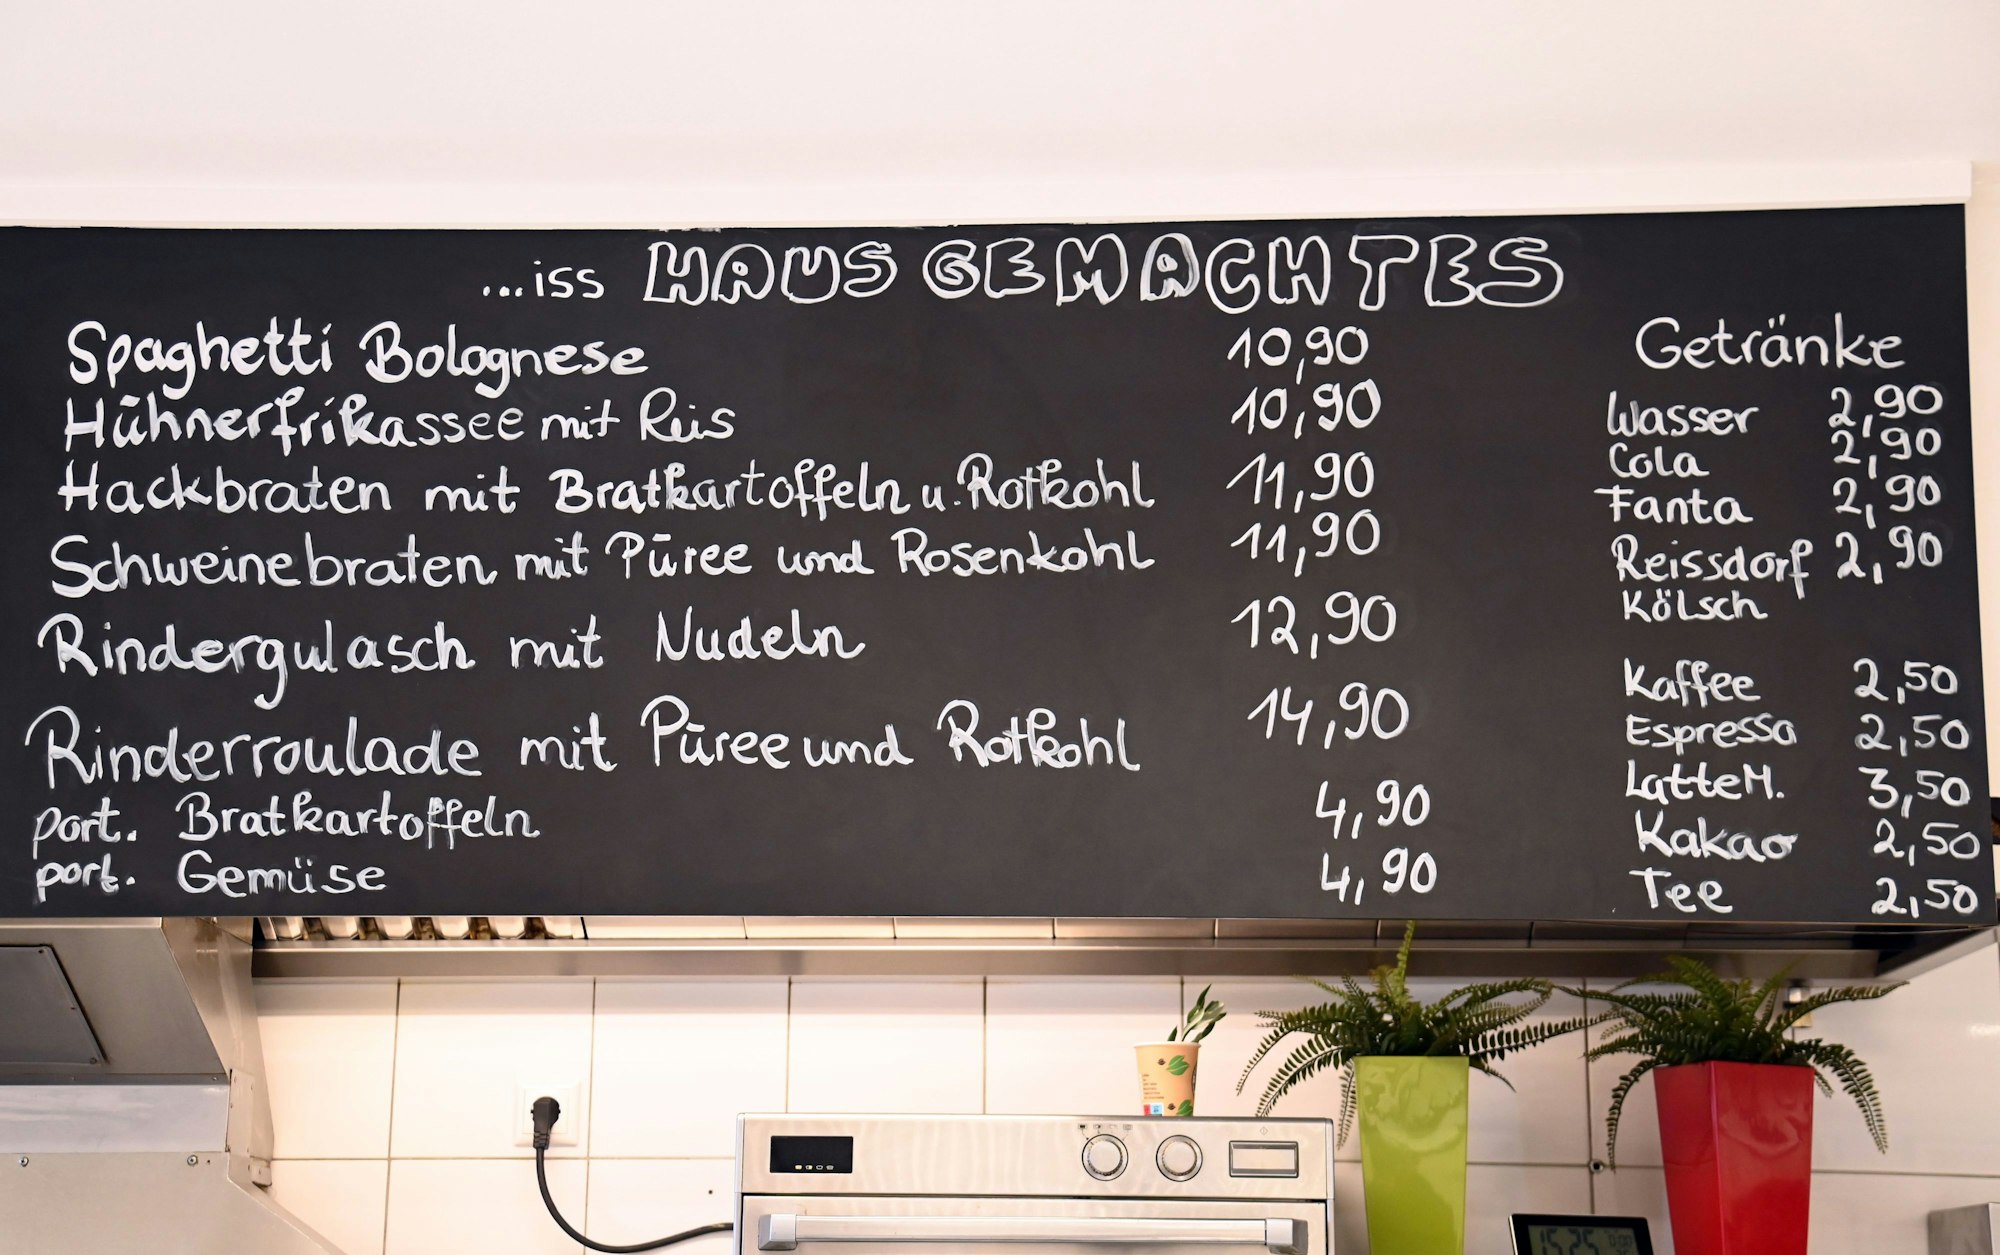 ...iss HAUSGEMACHTES
Spaghetti Bolognese 10,90
Hühnerfrikassee mit Reis 10,90
Hackbraten mit Bratkartoffeln u. Rotkohl 11,90
Schweinebraten mit Püree und Rosenkohl 11,90
Rindergulasch mit Nudeln 12,90
Rinderroulade mit Püree und Rotkohl 14,90
port. Bratkartoffeln 4,90
port. Gemüse 4,90
Getränke
Wasser 2,90
Cola 2,90
Fanta 2,90
Reissdorf 2,90
Kölsch
Kaffee 2,50
Espresso 2,50
Latte M. 3,50
Kakao 2,50
Tee 2,50
15:25